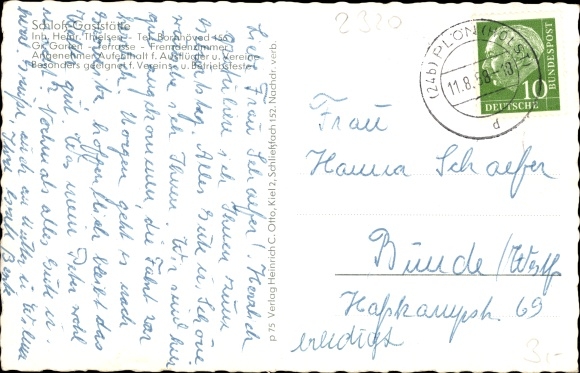 Schloß-Gaststätte
Inh. Heinr. Thielsen - Tel. Bornhöved 156
Gr. Garten - Terrasse - Fremdenzimmer
Angenehmer Aufenthalt f. Ausflügler u. Vereine
Besonders geeignet f. Vereins- u. Betriebsfeste
Liebe Frau Schaefer! Herzlich
gratuliere ich Ihnen zum
Alles Gute u. Schöne
wünsche ich Ihnen. Wir sind hier
gut angekommen, die Fahrt war
Morgen geht es nach
hoffentlich bleibt das
gut. Was mein Peter wohl
macht? Nochmals alles Gute u.
p 75 Verlag Heinrich C. Otto, Kiel 2, Schließfach 152. Nachdr. verb.
2320
(24b) PLÖN (HOLST)
11.8.58
d
10
DEUTSCHE
BUNDESPOST
Frau
Hanna Schaefer
Bünde/Westf
Haßkampstr. 69
erledigt
3,-